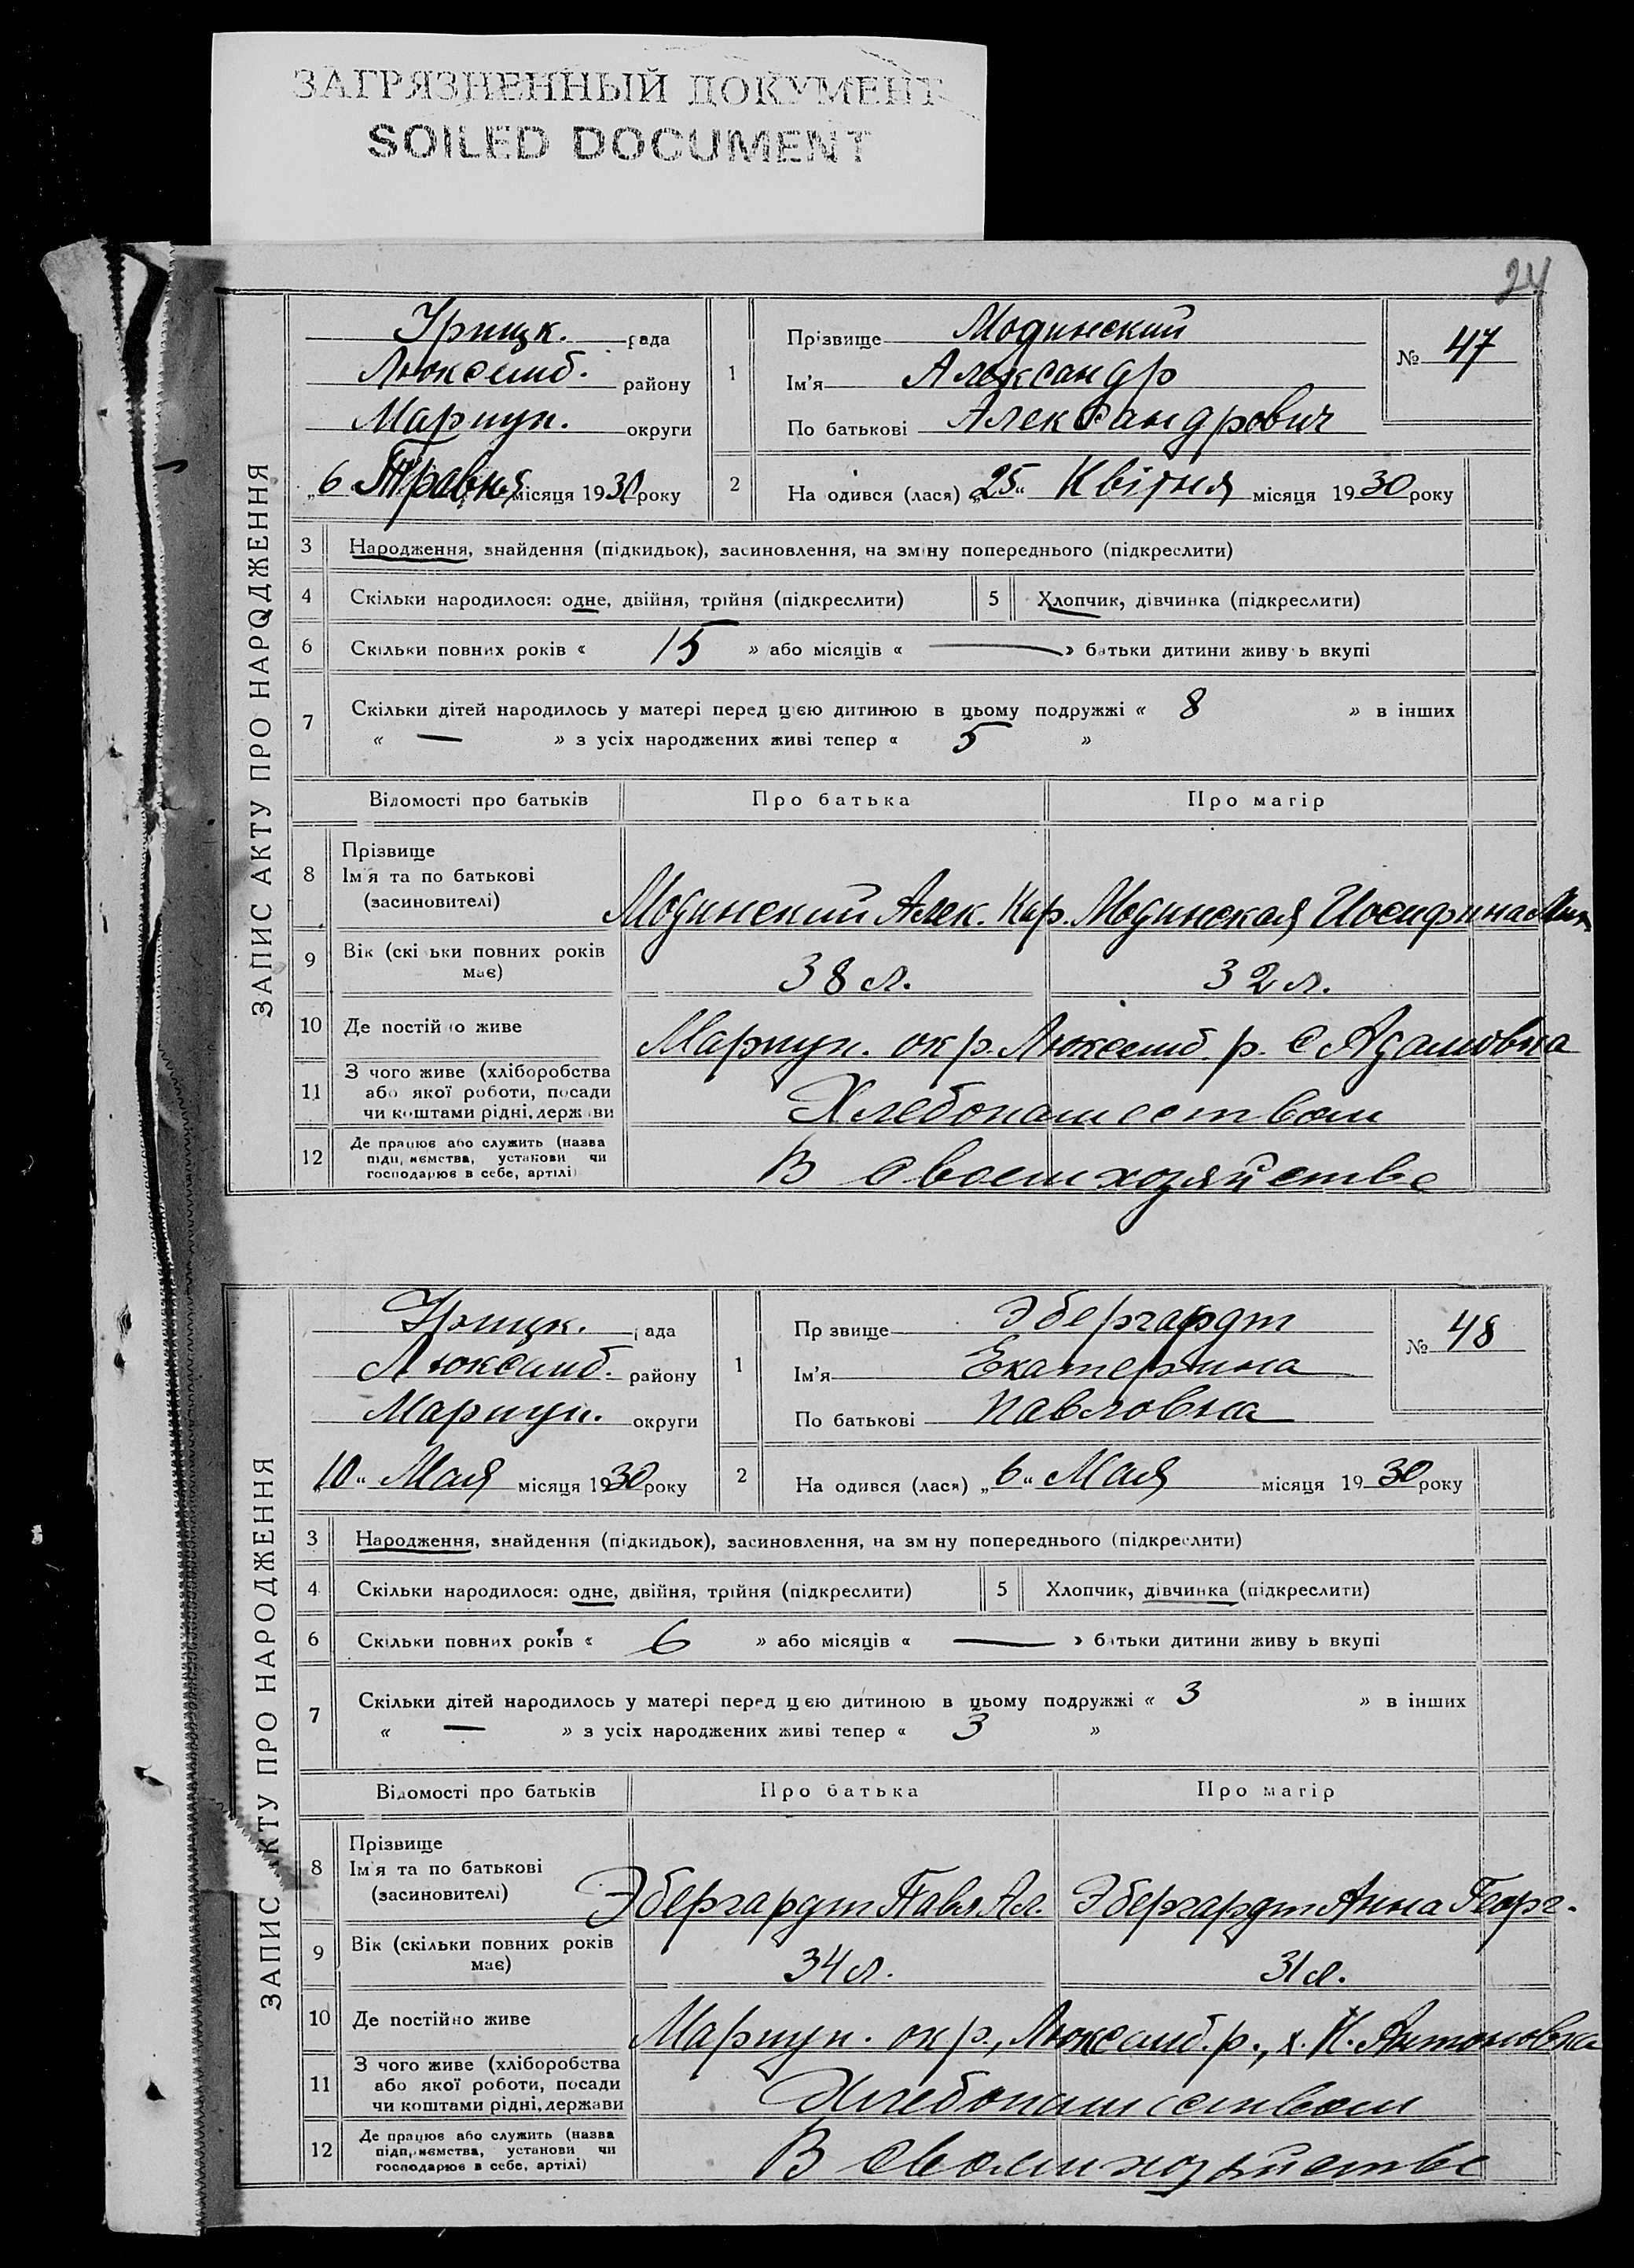 ЗАГРЯЗНЕННЫЙ ДОКУМЕНТ
SOILED DOCUMENT
24
ЗАПИС АКТУ ПРО НАРОДЖЕННЯ
Урицк. рада
Люксемб. району
Мариуп. округи
„6 Травня місяця 1930 року
1
Прізвище Модинский
Ім'я Александр
По батькові Александрович
№ 47
2 На одився (лася) „25“ Квітня місяця 1930 року
3 Народження, знайдення (підкидьок), засиновлення, на зміну попереднього (підкреслити)
4 Скільки народилося: одне, двійня, трійня (підкреслити) 5 Хлопчик, дівчинка (підкреслити)
6 Скільки повних років « 15 » або місяців « — » батьки дитини живуть вкупі
7 Скільки дітей народилось у матері перед цією дитиною в цьому подружжі « 8 » в інших
« — » з усіх народжених живі тепер « 5 »
Відомості про батьків Про батька Про матір
8 Прізвище
Ім'я та по батькові
(засиновителі)
Модинский Алек. Кар. Модинская Иосифина
9 Вік (скі ьки повних років
має)
38 л. 32 л.
10 Де постійно живе Мариуп. окр. Люксемб. р. с Адамовка
11 З чого живе (хліборобства
або якої роботи, посади
чи коштами рідні, держави
Хлебопашеством
12 Де працює або служить (назва
підприємства, установи чи
господарює в себе, артілі)
В своем хозяйстве
ЗАПИС АКТУ ПРО НАРОДЖЕННЯ
Урицк. рада
Люксемб. району
Мариуп. округи
„10“ Мая місяця 1930 року
1
Пр звище Эбергардт
Ім'я Екатерина
По батькові Павловна
№ 48
2 На одився (лася) „6“ Мая місяця 1930 року
3 Народження, знайдення (підкидьок), засиновлення, на зм ну попереднього (підкреслити)
4 Скільки народилося: одне, двійня, трійня (підкреслити) 5 Хлопчик, дівчинка (підкреслити)
6 Скільки повних років « 6 » або місяців « — » батьки дитини живу ь вкупі
7 Скільки дітей народилось у матері перед цією дитиною в цьому подружжі « 3 » в інших
« — » з усіх народжених живі тепер « 3 »
Відомості про батьків Про батька Про матір
8 Прізвище
Ім'я та по батькові
(засиновителі)
Эбергардт Павл. Ал. Эбергардт Анна Георг.
9 Вік (скільки повних років
має)
34 л. 31 л.
10 Де постійно живе Мариуп. окр., Люксемб. р., х. Н. Антоновка
11 З чого живе (хліборобства
або якої роботи, посади
чи коштами рідні, держави
Хлебопашеством
12 Де працює або служить (назва
підприємства, установи чи
господарює в себе, артілі)
В своем хозяйстве